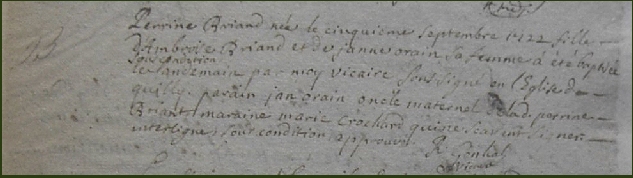 Perrine Briand née le cinquième septembre 1722 fille
d'Ambroise Briand et de janne orain sa femme a été baptisée
sous condition
le landemain par moy vicaire soussigné en l'Eglise de
quilly. parain jan orain oncle maternel de lad. perrine
Briant maraine marie Crochard qui ne scavent signer
interligne sous condition approuvé
vicaire